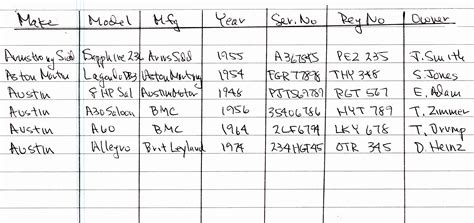 Make Model Mfg Year Ser.No Reg No Owner
Armstrong Sidd Sapphire 236 Arm Sidd 1955 A367845 PE2 235 J. Smith
Aston Martin Lagonda 1954 THY 348 S Jones
Austin 8HP Sal Austin Motor 1948 RGT 567 E. Adam
Austin A30 Saloon BMC 1956 35406786 MYT 789 T. Zimmer
Austin A60 BMC 1964 2LF6794 LKY 678 T. Drump
Austin Allegro Brit Leyland 1974 234HGT45 OTR 345 D. Heinz